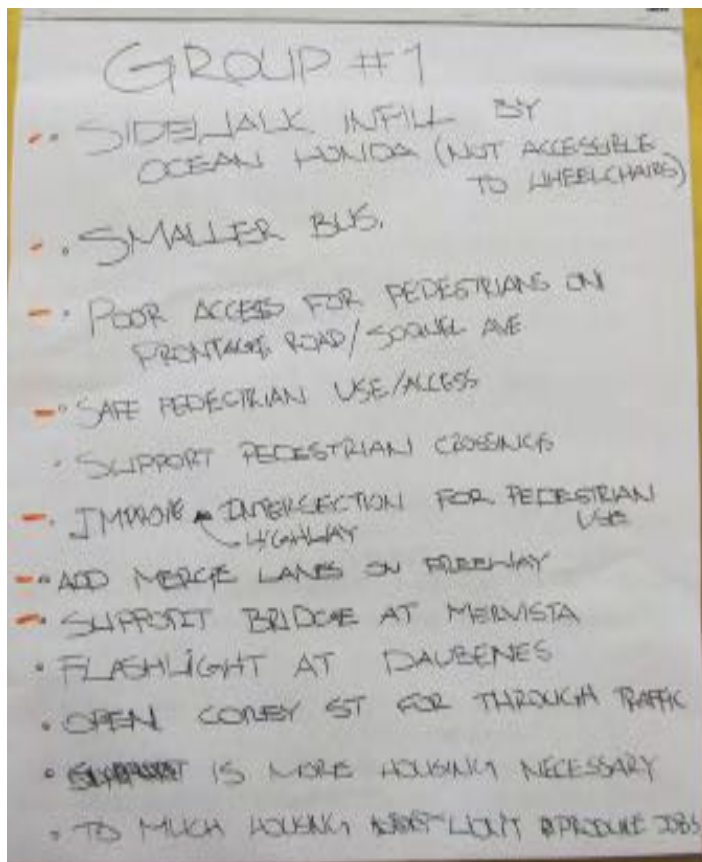 GROUP #1
• SIDEWALK INFILL BY
OCEAN HONDA (NOT ACCESSIBLE
TO WHEELCHAIRS)
• SMALLER BUS.
• POOR ACCESS FOR PEDESTRIANS ON
FRONTAGE ROAD/SOQUEL AVE
• SAFE PEDESTRIAN USE/ACCESS
• SUPPORT PEDESTRIAN CROSSINGS
• IMPROVE INTERSECTION FOR PEDESTRIAN
USE
HIGHWAY
• ADD MERGE LANES ON FREEWAY
• SUPPORT BRIDGE AT MERVISTA
• FLASHLIGHT AT DAUBENES
• OPEN COREY ST FOR THROUGH TRAFFIC
• IS MORE HOUSING NECESSARY
• TO MUCH HOUSING WON'T PRODUCE JOBS